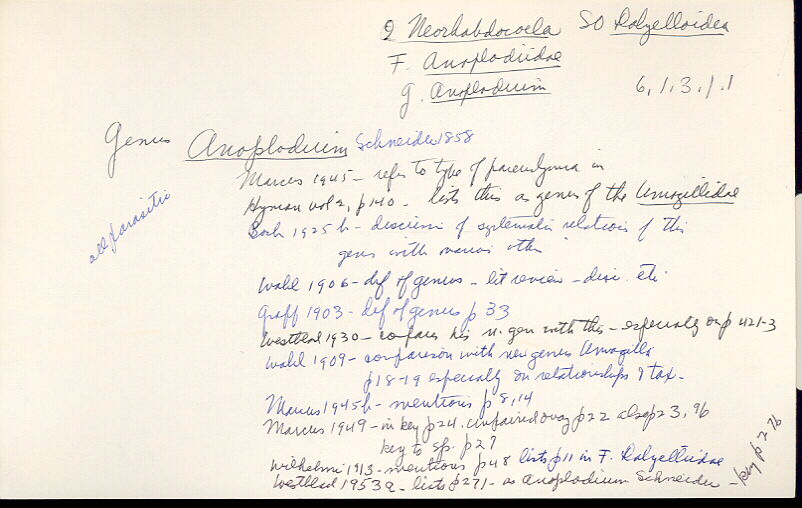 O Neorhabdocoela SO Dalyelloidea
F. Anoplodiidae
g. Anoplodium 6.1.3.1.1
Genus Anoplodium Schneider 1858
all parasitic
Marcus 1945 - refers to type of parenchyma in
Hyman vol 2, p 140 - lists this as genus of the Umagillidae
Bock 1925 b - discussion of systematic relations of this
genus with various other
Wahl 1906 - def of genus - lit review - disc. etc
Graff 1903 - def of genus p 33
Westblad 1930 - compares his n. gen with this - especially on p 421-3
Wahl 1909 - comparison with new genus Umagilla
p 18-19 especially on relationships & tax.
Marcus 1945 b - mentions p 8, 14
Marcus 1949 - in key p 24, unpaired ovary p 22 also p 23, 96
key to sp. p 27
Wilhelmi 1913 - mentions p 48 lists p 11 in F. Dalyelliidae
Westblad 1953a - lists p 271 - as Anoplodium Schneider - key p 276